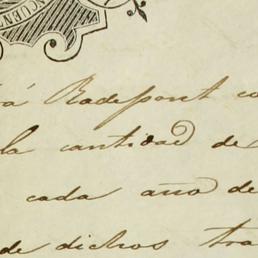 á Radepont co
la cantidad de
cada año de
de dichos tra